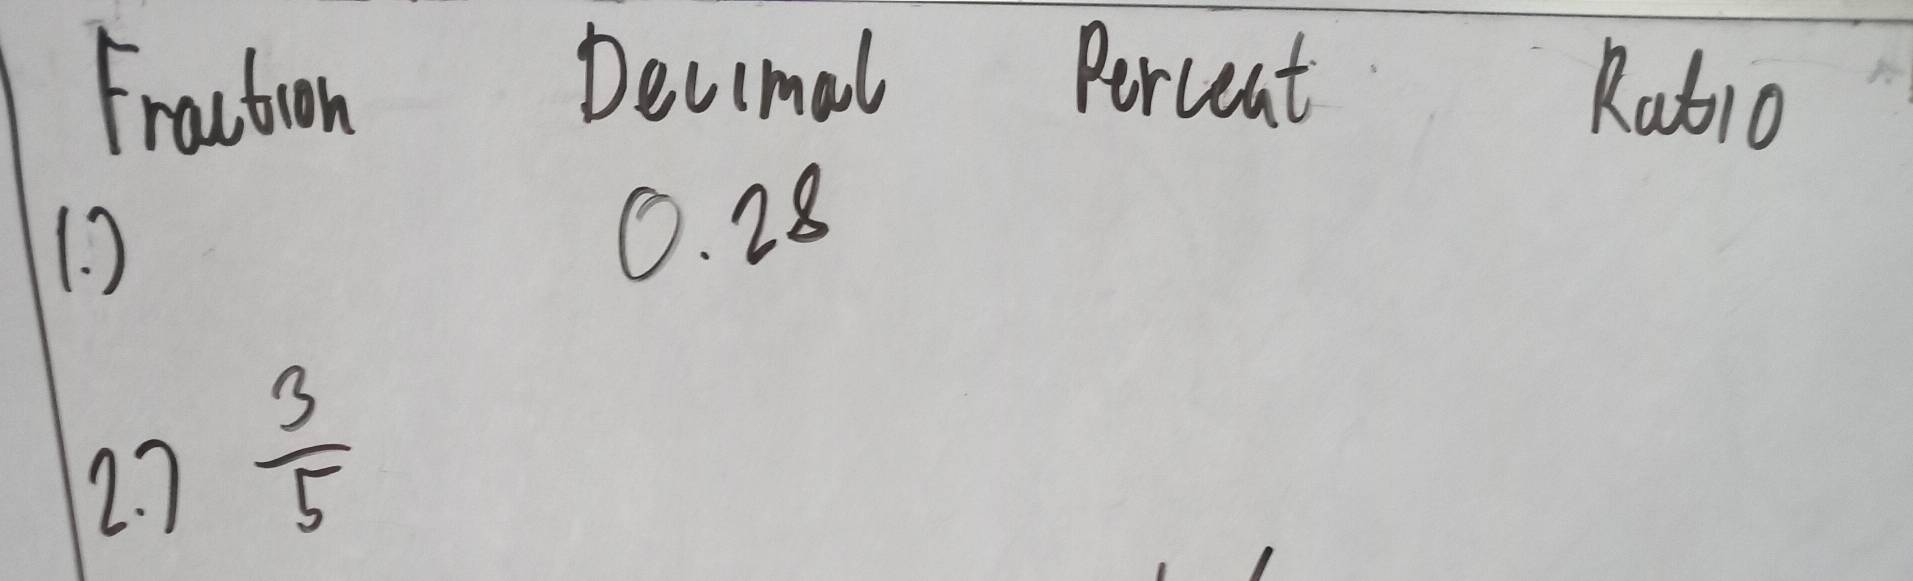 Fraction Decimal Percent Ratio
1.) 0.28
2.) 3/5